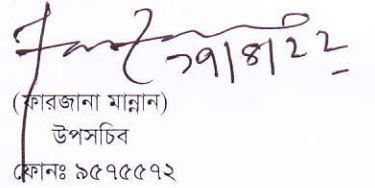 ২৭/৪/২২
(ফারজানা মান্নান)
উপসচিব
ফোনঃ ৯৫৭৫৫৭২